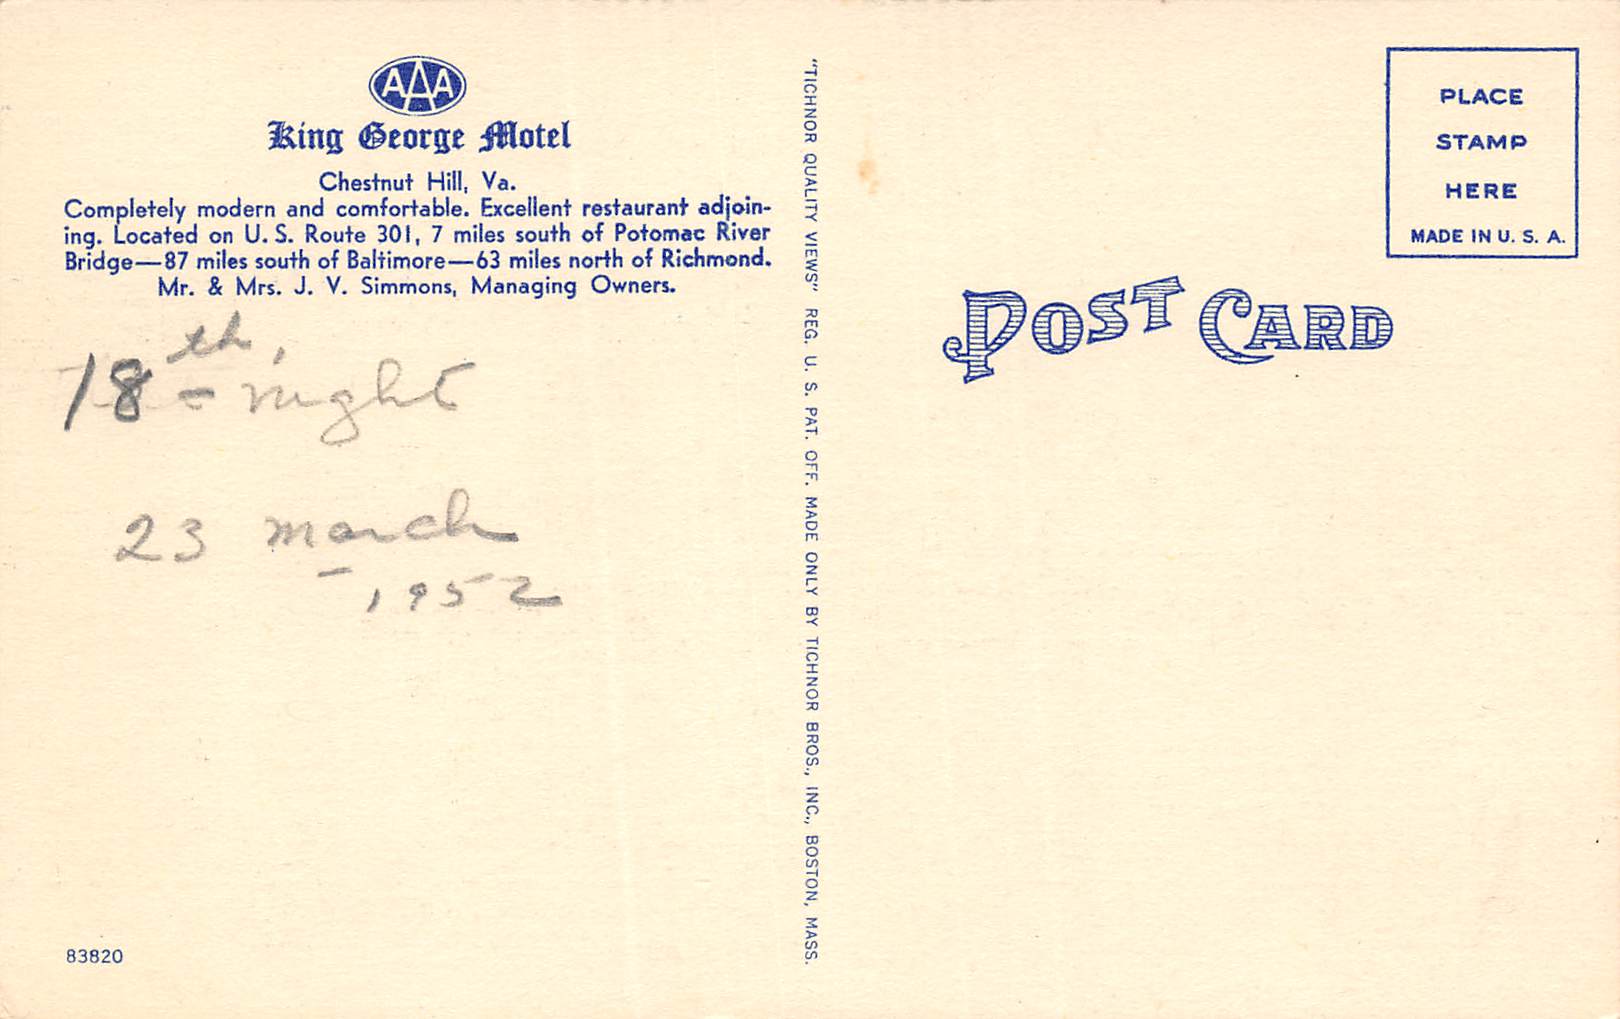 AAA
King George Motel
Chestnut Hill, Va.
Completely modern and comfortable. Excellent restaurant adjoin-
ing. Located on U. S. Route 301, 7 miles south of Potomac River
Bridge—87 miles south of Baltimore—63 miles north of Richmond.
Mr. & Mrs. J. V. Simmons, Managing Owners.
18th - night
23 March
- 1952
83820
"TICHNOR QUALITY VIEWS" REG. U. S. PAT. OFF. MADE ONLY BY TICHNOR BROS., INC., BOSTON, MASS.
PLACE
STAMP
HERE
MADE IN U. S. A.
POST CARD